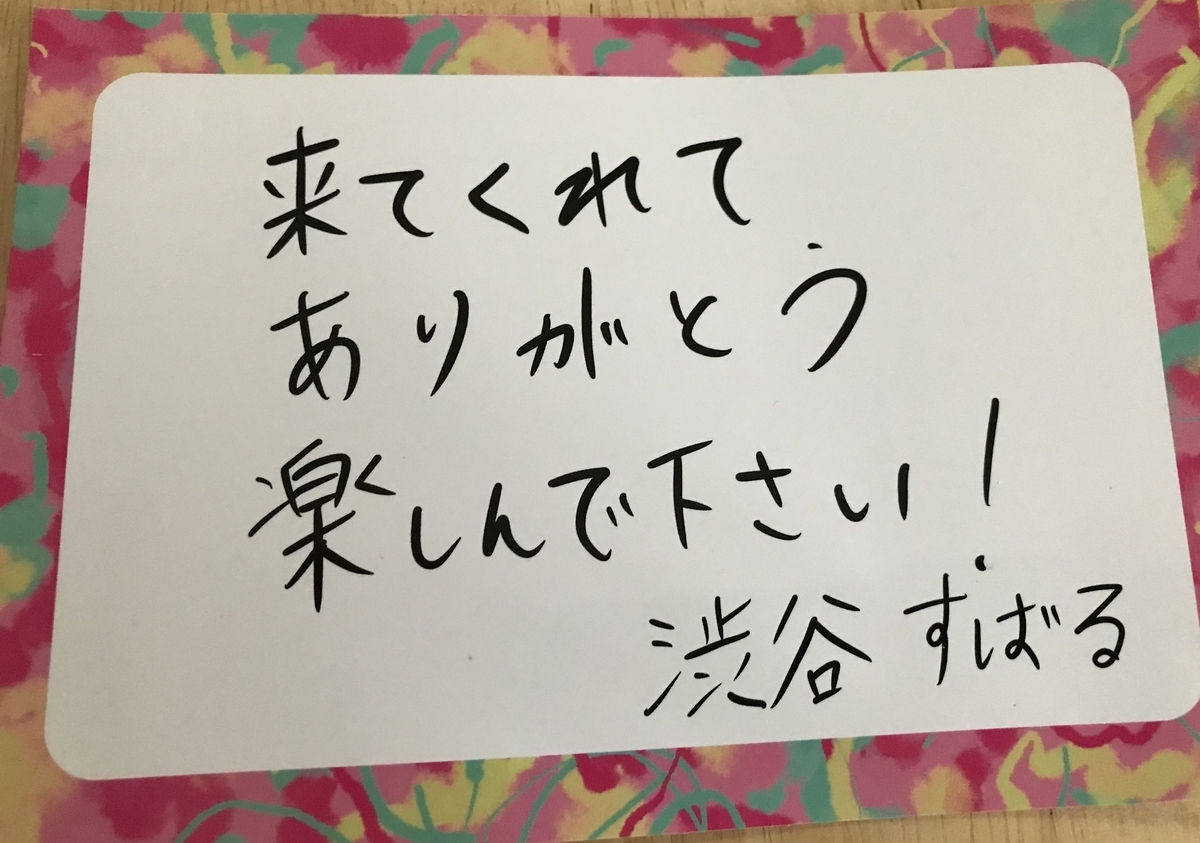 来てくれて
ありがとう
楽しんで下さい!
渋谷 すばる